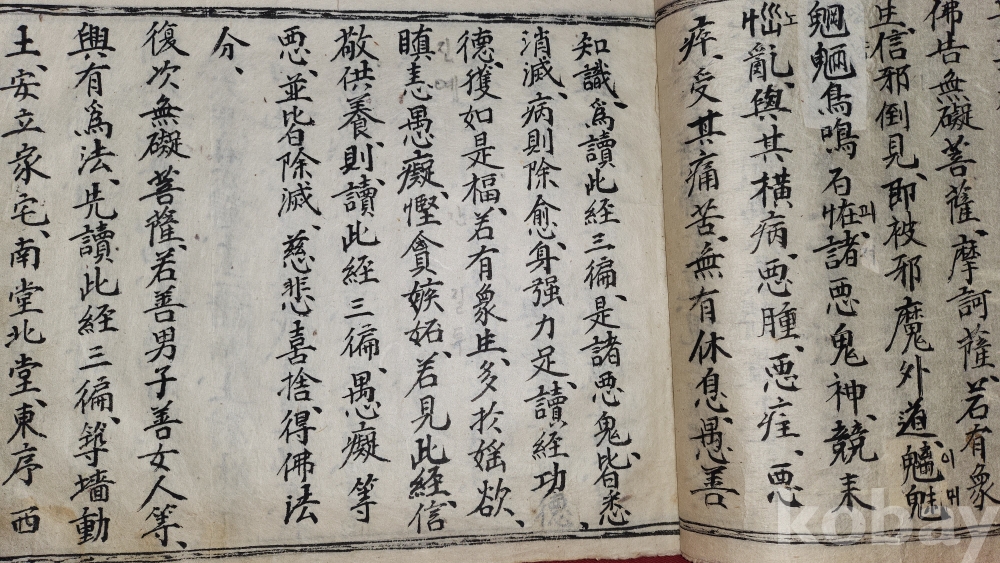 佛告無礙菩薩、摩訶薩、若有衆
生、信邪倒見、即被邪魔外道、魑魅이매
魍魎、鳥鳴石怪、괴諸惡鬼神、競来
惱노亂、與其橫病、惡腫、惡疰、惡
瘁、受其痛苦、無有休息、愚善
知識、爲讀此経三徧、是諸惡鬼、皆悉
消滅、病則除愈、身强力足、讀経功
德、獲如是福、若有衆生、多扵婬欲、
瞋恚愚癡、慳貪嫉妬、若見此経、信
敬供養、則讀此経三徧、愚癡等
惡、並皆除滅、慈悲喜捨、得佛法
分、
復次無礙菩薩、若善男子善女人等、
興有爲法、先讀此経三徧、築墻動
土、安立家宅、南堂北堂、東序西
kobay